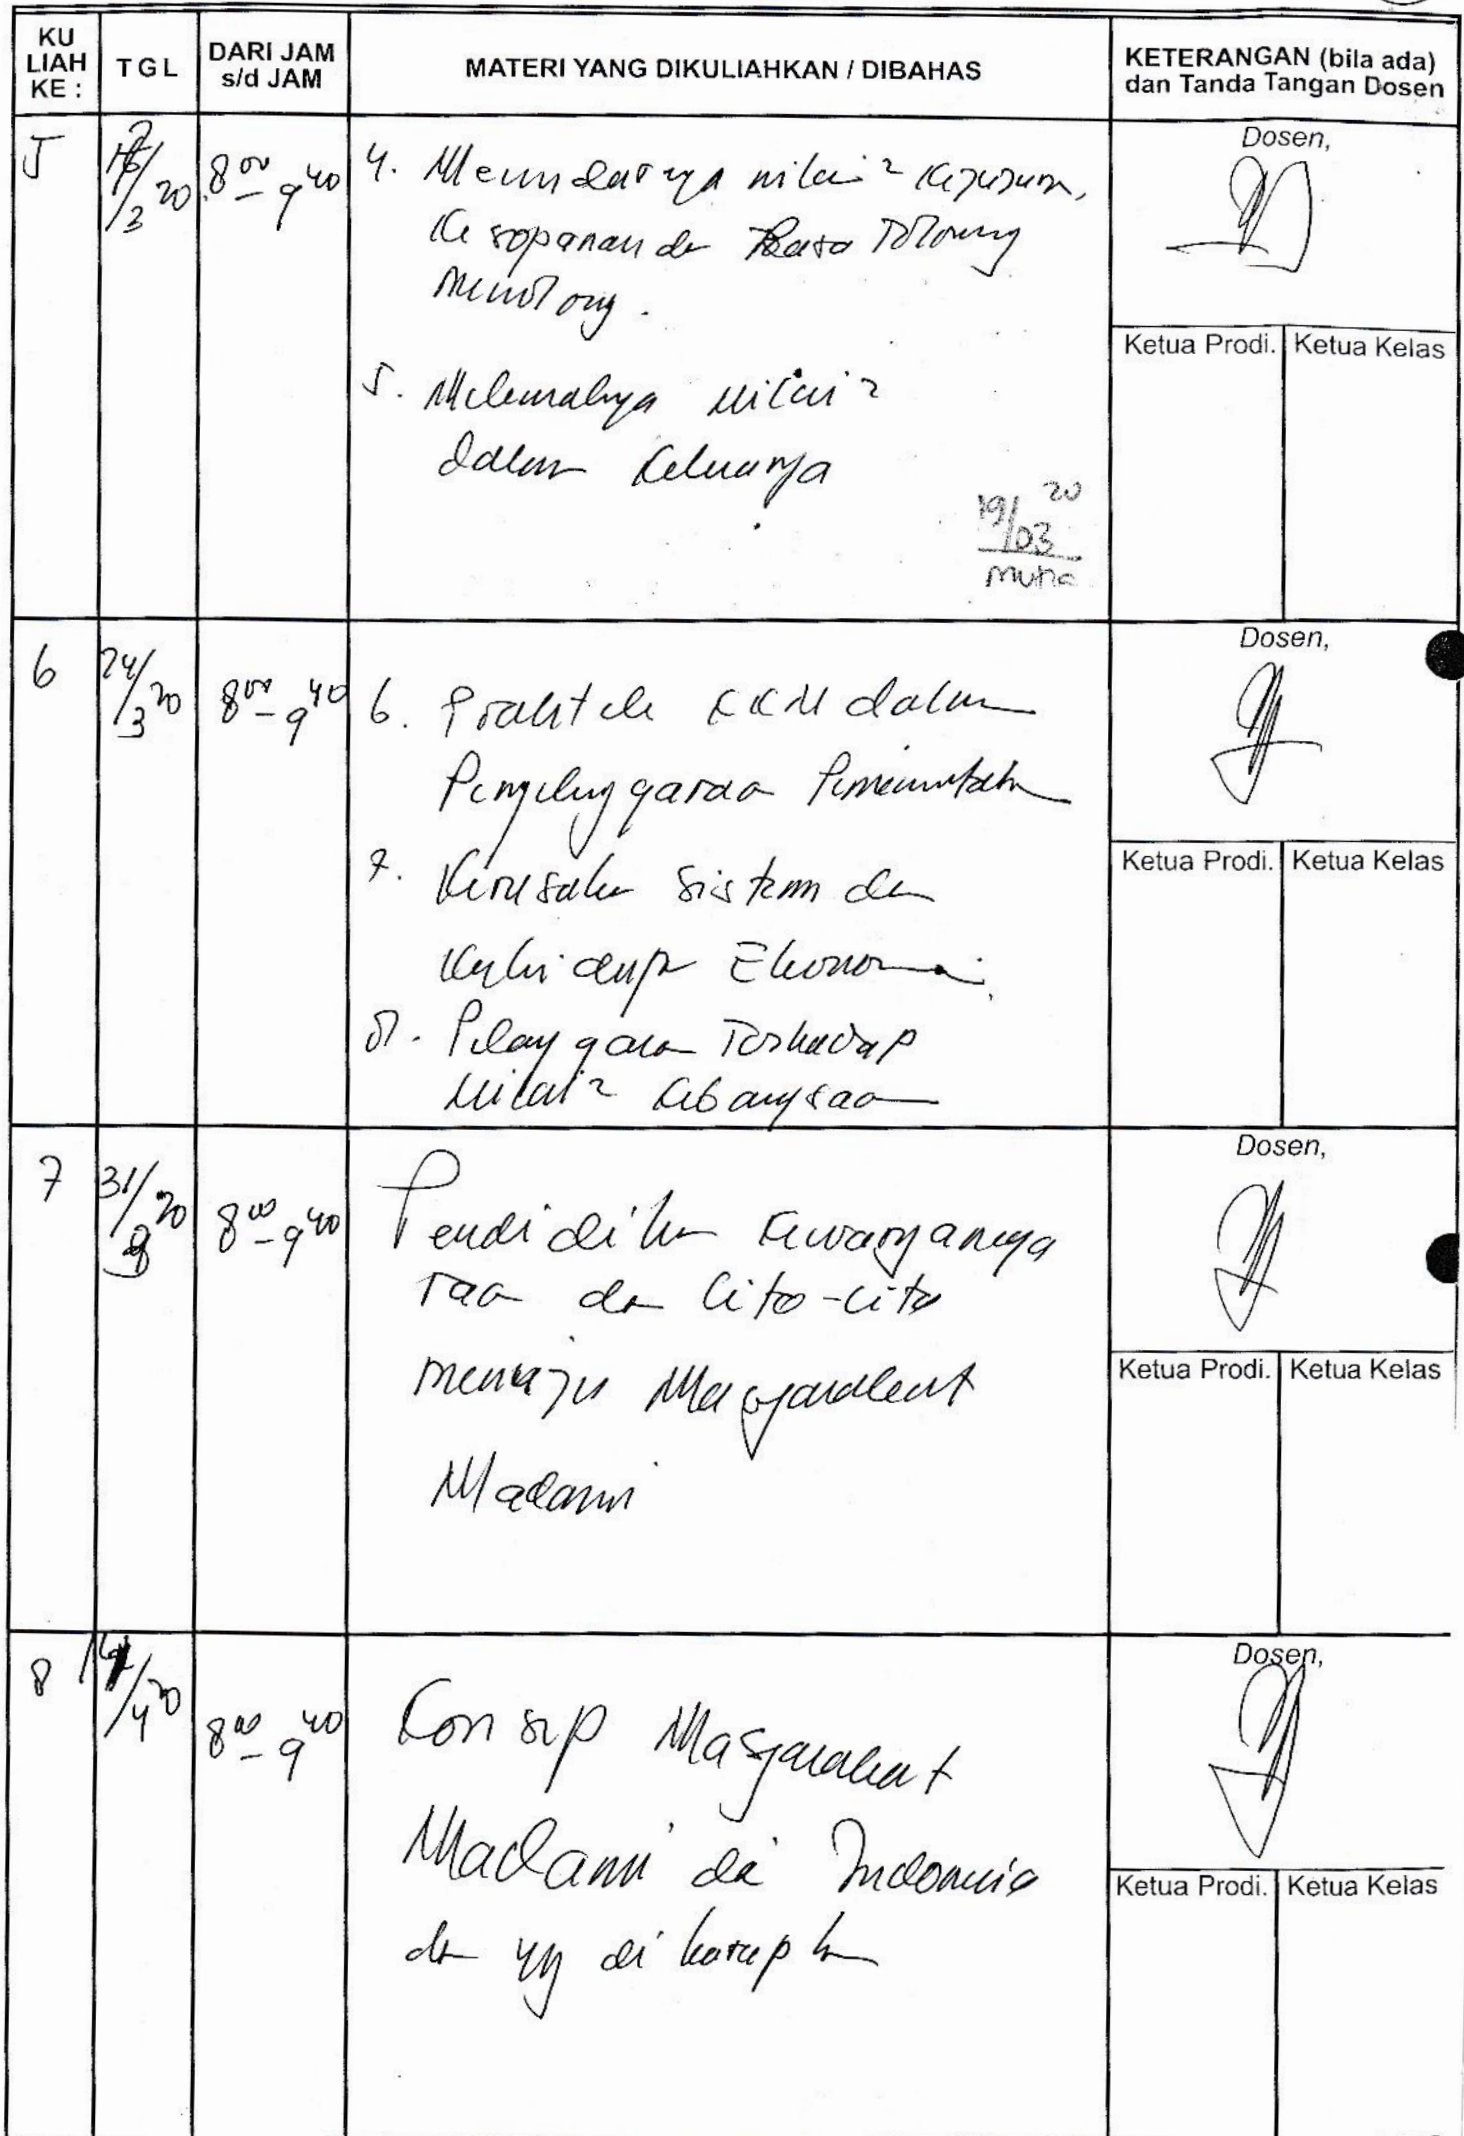 KU
LIAH
KE :
TGL
DARI JAM
s/d JAM
MATERI YANG DIKULIAHKAN / DIBAHAS
KETERANGAN (bila ada)
dan Tanda Tangan Dosen
5
/3 20
8.00 - 9 40
4. Memudarnya nilai2 Kejujuran,
Kesopanan dan Rasa Tolong
Menolong.
5. Melemahnya Nilai2
dalam Keluarga
19/03 20
Muna
Dosen,
Ketua Prodi.
Ketua Kelas
6
24/3 20
8 00 - 9 40
6. Praktek KKN dalam
Penyelenggaraan Pemerintahan
7. Kerusakan Sistem dan
Kehidupan Ekonomi.
8. Pelanggaran Terhadap
Nilai2 Kebangsaan
Dosen,
Ketua Prodi.
Ketua Kelas
7
31/3 20
8 00 - 9 40
Pendidikan Kewarganega
raan dan Cita-cita
menuju Masyarakat
Madani
Dosen,
Ketua Prodi.
Ketua Kelas
8
/4 20
8 00 - 9 40
Konsep Masyarakat
Madani di Indonesia
dan yg di harapkan
Dosen,
Ketua Prodi.
Ketua Kelas